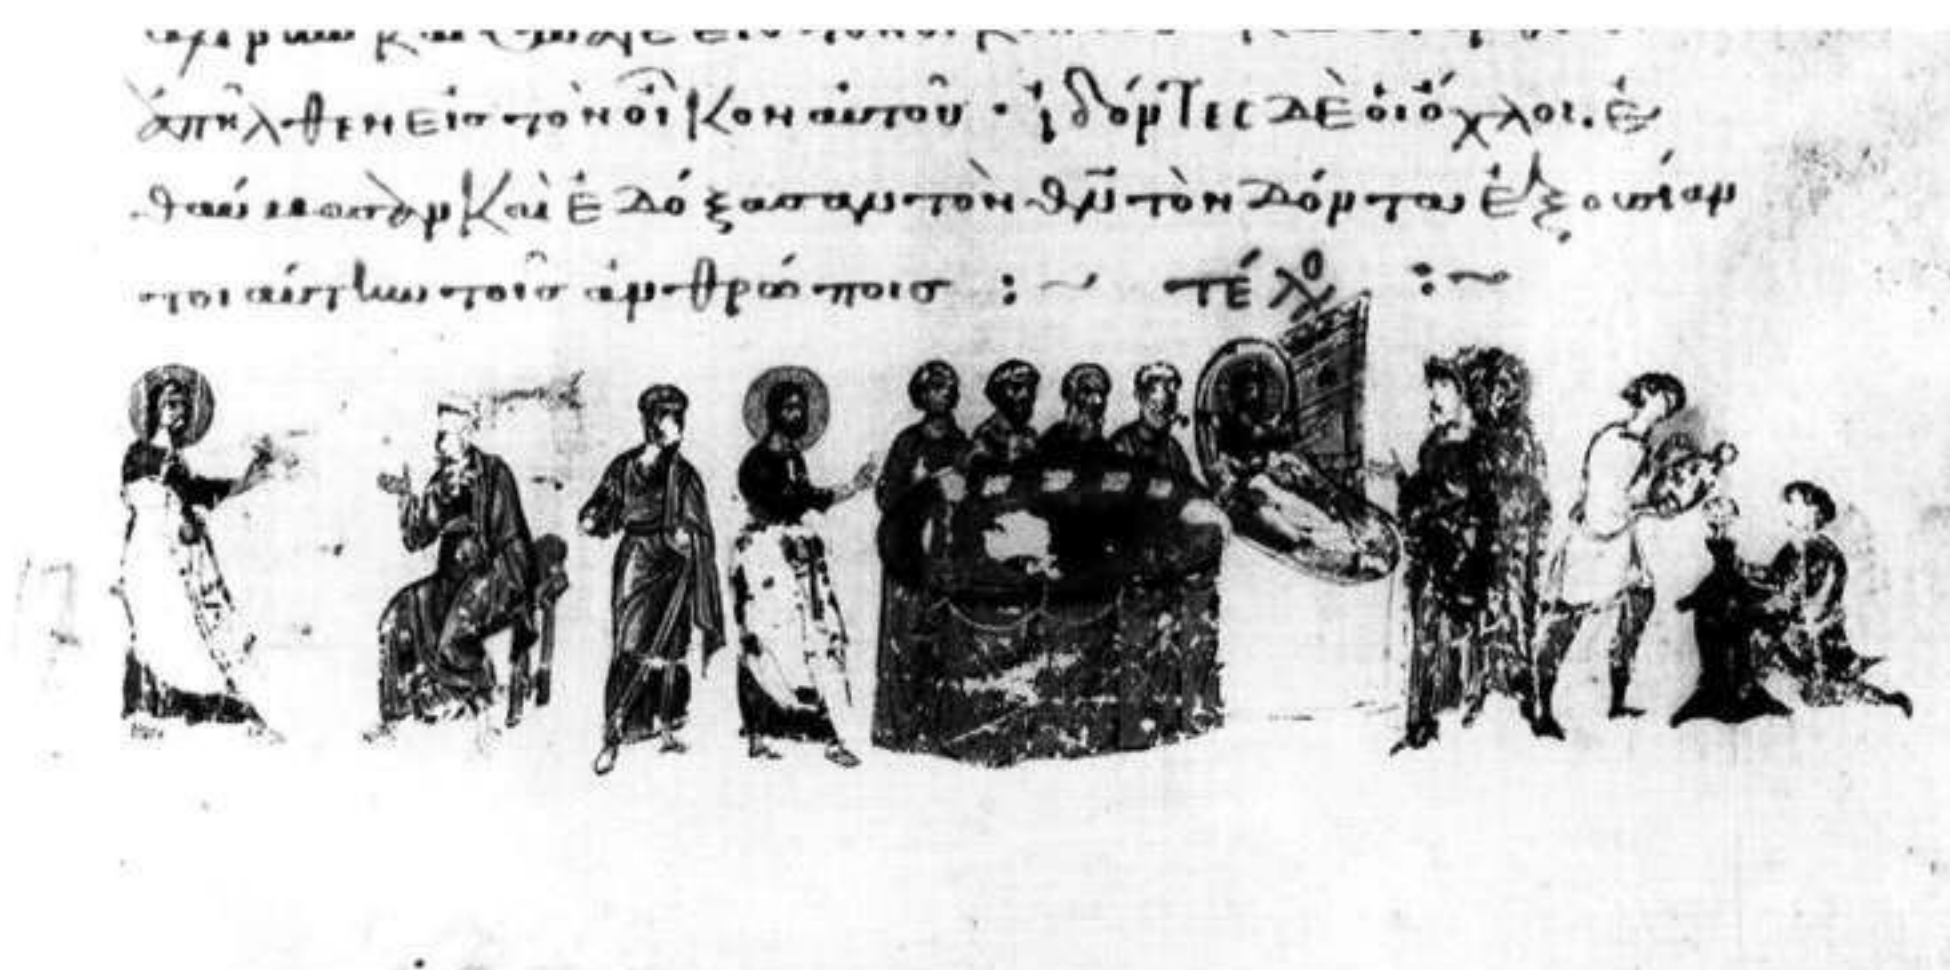 ἀπῆλθεν εἰς τὸν οἶκον αὐτοῦ · ἰδόντες δὲ οἱ ὄχλοι. ἐ
θαύμασαν καὶ ἐδόξασαν τὸν θν̅ τὸν δόντα ἐξουσίαν
τοιαύτην τοῖς ἀνθρώποις :~ τέλο :~